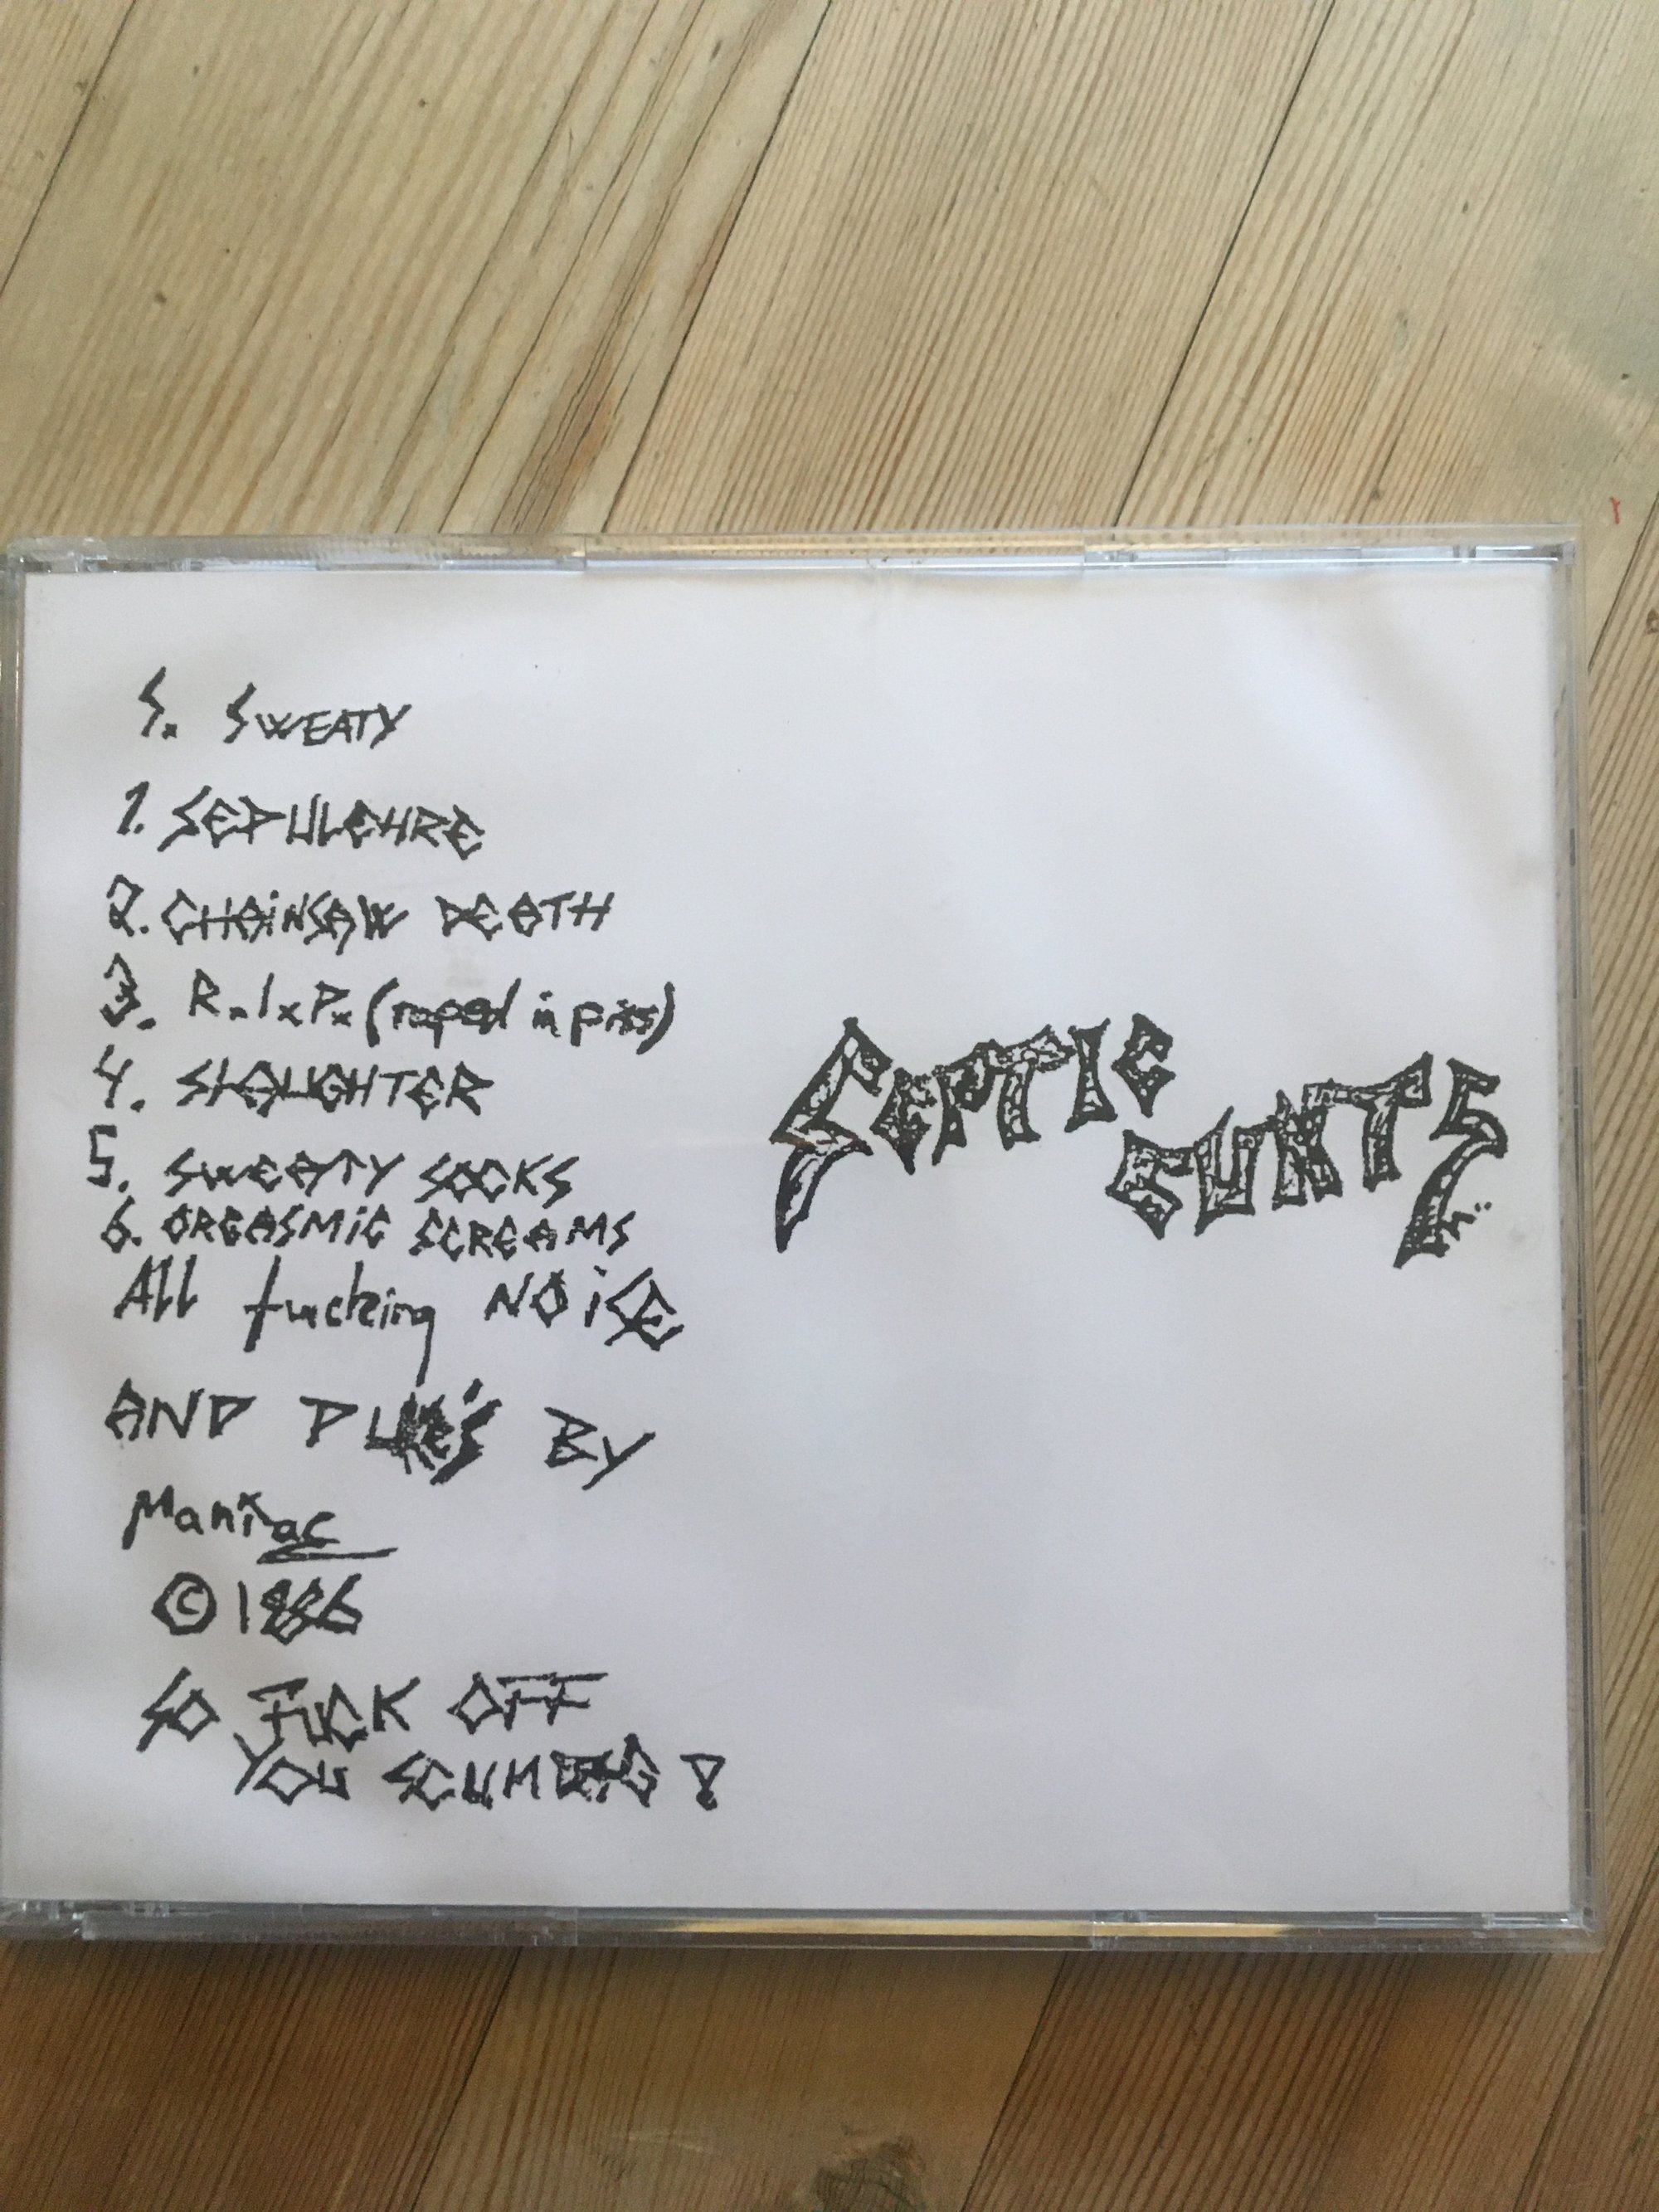 S. SWEATY
1. SEPULCHRE
2. CHAiNSAW DEATH
3. R.I.P. (raped in piss)
4. SLAUGHTER
5. SWEATY SOCKS
6. ORGASMiC SCREAMS
All fucking NOiSE
AND PUKE'S BY
Maniac
© 1986
SO FUCK OFF
YOU SCUMBAG!
SEPTIC
CUNTS